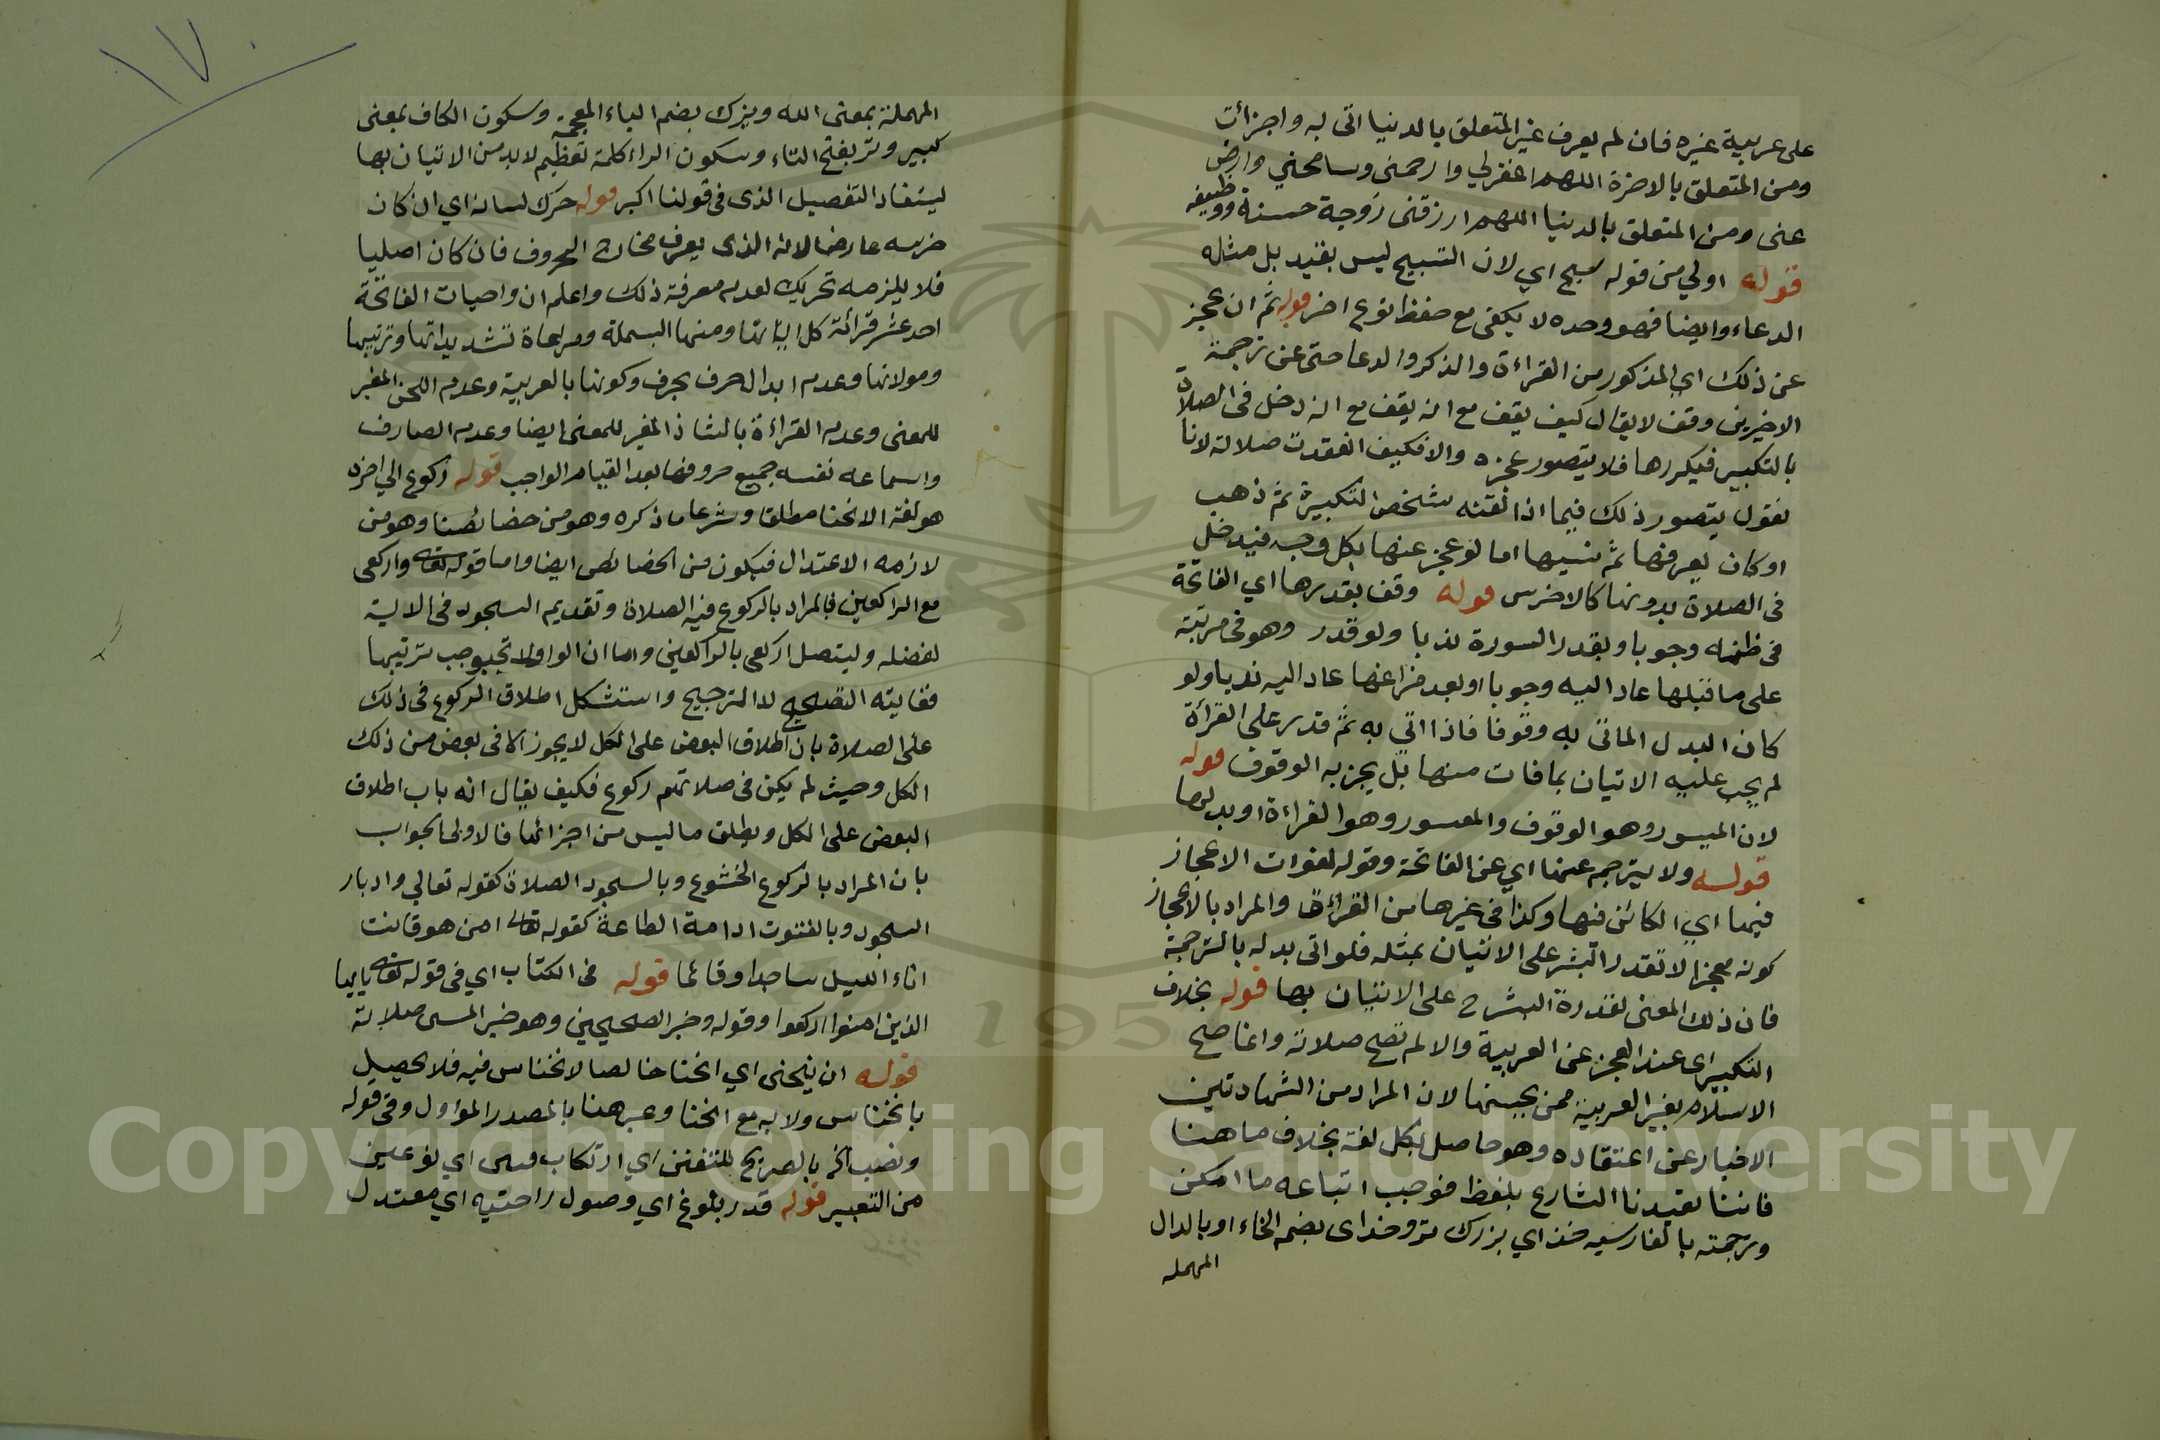 على عربية غيره فان لم يعرف غير المتعلق بالدنيا اتى به واجزأت
ومن المتعلق بالاخرة اللهم اغفرلي وارحمنى وسامحني وارض
عنى ومن المتعلق بالدنيا اللهم ارزقنى زوجة حسنة ووظيفه
قوله اولي من قوله سبح اي لان التسبيح ليس بقيد بل مثله
الدعاء وايضا فهو وحده لا يكفى مع حفظ نوع اخر قوله ثم ان عجز
عن ذلك اي المذكور من القراءة والذكر والدعا حتى عن ترجمة
الاخيرين وقف لا يقال كيف يقف مع انه يقف مع انه دخل فى الصلاة
بالتكبير فيكررها فلا يتصور عجزه والا فكيف انعقدت صلاته لانا
نقول يتصور ذلك فيما اذا لقنه شخص التكبيرة ثم ذهب
او كان يعرفها ثم نسيها اما لو عجز عنها بكل وجه فيدخل
فى الصلاة بدونها كالاخرس قوله وقف بقدرها اي الفاتحة
فى ظنه وجوبا وبقدر السورة ندبا ولو قدر وهو فى مرتبة
على ما قبلها عاد اليه وجوبا او بعد فراغها عاد اليه ندبا ولو
كان البدل الماتى به وقوفا فاذا اتى به ثم قدر على القرأة
لم يجب عليه الاتيان بما فات منها بل يجزيه الوقوف قوله
لان الميسور وهو الوقوف والمعسور وهو القراءة او بدلها
قوله ولا يترجم عنها اي عن الفاتحة وقوله لفوات الاعجاز
فيها اي الكائن فيها وكذا فى غيرها من القرائة والمراد بالاعجاز
كونه معجزا لا تقدر البشر على الاتيان بمثله فلو اتى بدله بالترجمة
فان ذلك المعنى لقدرة البشر على الاتيان بها قوله بخلاف
التكبير اى عند العجز عن العربية والا لم تصح صلاته وانما صح
الاسلام بغير العربية ممن يحسنها لان المراد من الشهادتين
الاخبار عن اعتقاده وهو حاصل بكل لغة بخلاف ما هنا
فاننا تعبدنا الشارع بلفظ فوجب اتباعه ما امكن
وترجمته بالفارسيه خداي بزرك تر وخداى بضم الخاء او بالدال
المهمله
١٧٠
المهملة بمعنى الله وبزرك بضم الباء المعجمة وسكون الكاف بمعنى
كبير وتر بفتح التاء وسكون الراء كلمة تعظيم لابد من الاتيان بها
ليستفاد التفصيل الذى فى قولنا اكبر قوله حرك لسانه اي ان كان
خرسه عارضا لانه الذى يعرف مخارج الحروف فان كان اصليا
فلا يلزمه تحريك لعدم معرفة ذلك واعلم ان واجبات الفاتحة
احد عشر قرائة كل اياتها ومنها البسملة ومراعاة تشديداتها وترتيبها
وموالاتها وعدم ابدال حرف بحرف وكونها بالعربية وعدم اللحن المغير
للمعنى وعدم القراءة بالشاذ المغير للمعنى ايضا وعدم الصارف
واسماعه نفسه جميع حروفها بعد القيام الواجب قوله ركوع الي اخره
هو لغة الانحنا مطلقا وشرعا ما ذكره وهو من خصائصنا وهو من
لازمه الاعتدال فيكون من الخصائص ايضا واما قوله تعالى واركعى
مع الراكعين فالمراد بالركوع فيه الصلاة وتقديم السجود فى الاية
لفضله وليتصل اركعى بالراكعين واما ان الواو لا توجب ترتيبها
فغايته التصحيح لا الترجيح واستشكل اطلاق الركوع فى ذلك
على الصلاة بان اطلاق البعض على الكل لا يجوز الا فى بعض من ذلك
الكل وحيث لم يكن فى صلاتهم ركوع فكيف يقال انه باب اطلاق
البعض على الكل ويطلق ما ليس من اجزائها فالاولى الجواب
بان المراد بالركوع الخشوع وبالسجود الصلاة كقوله تعالي وادبار
السجود وبالقنوت ادامة الطاعة كقوله تعالى امن هو قانت
اناء الليل ساجدا وقائما قوله فى الكتاب اي فى قوله تعالى يا ايها
الذين امنوا اركعوا وقوله وخبر الصحيحين وهو خبر المسى صلاته
قوله ان ينحنى اي انحناء خالصا لا انخناس فيه فلا يحصل
بانخناس ولا به مع انحنا وعبر هنا بالمصدر المؤول وفى قوله
ونصب بالصريح للتفنن اي ارتكاب فنين اي نوعين
من التعبير قوله قدر بلوغ اي وصول راحتيه اي معتدل
Copyright © King Saud University
1957